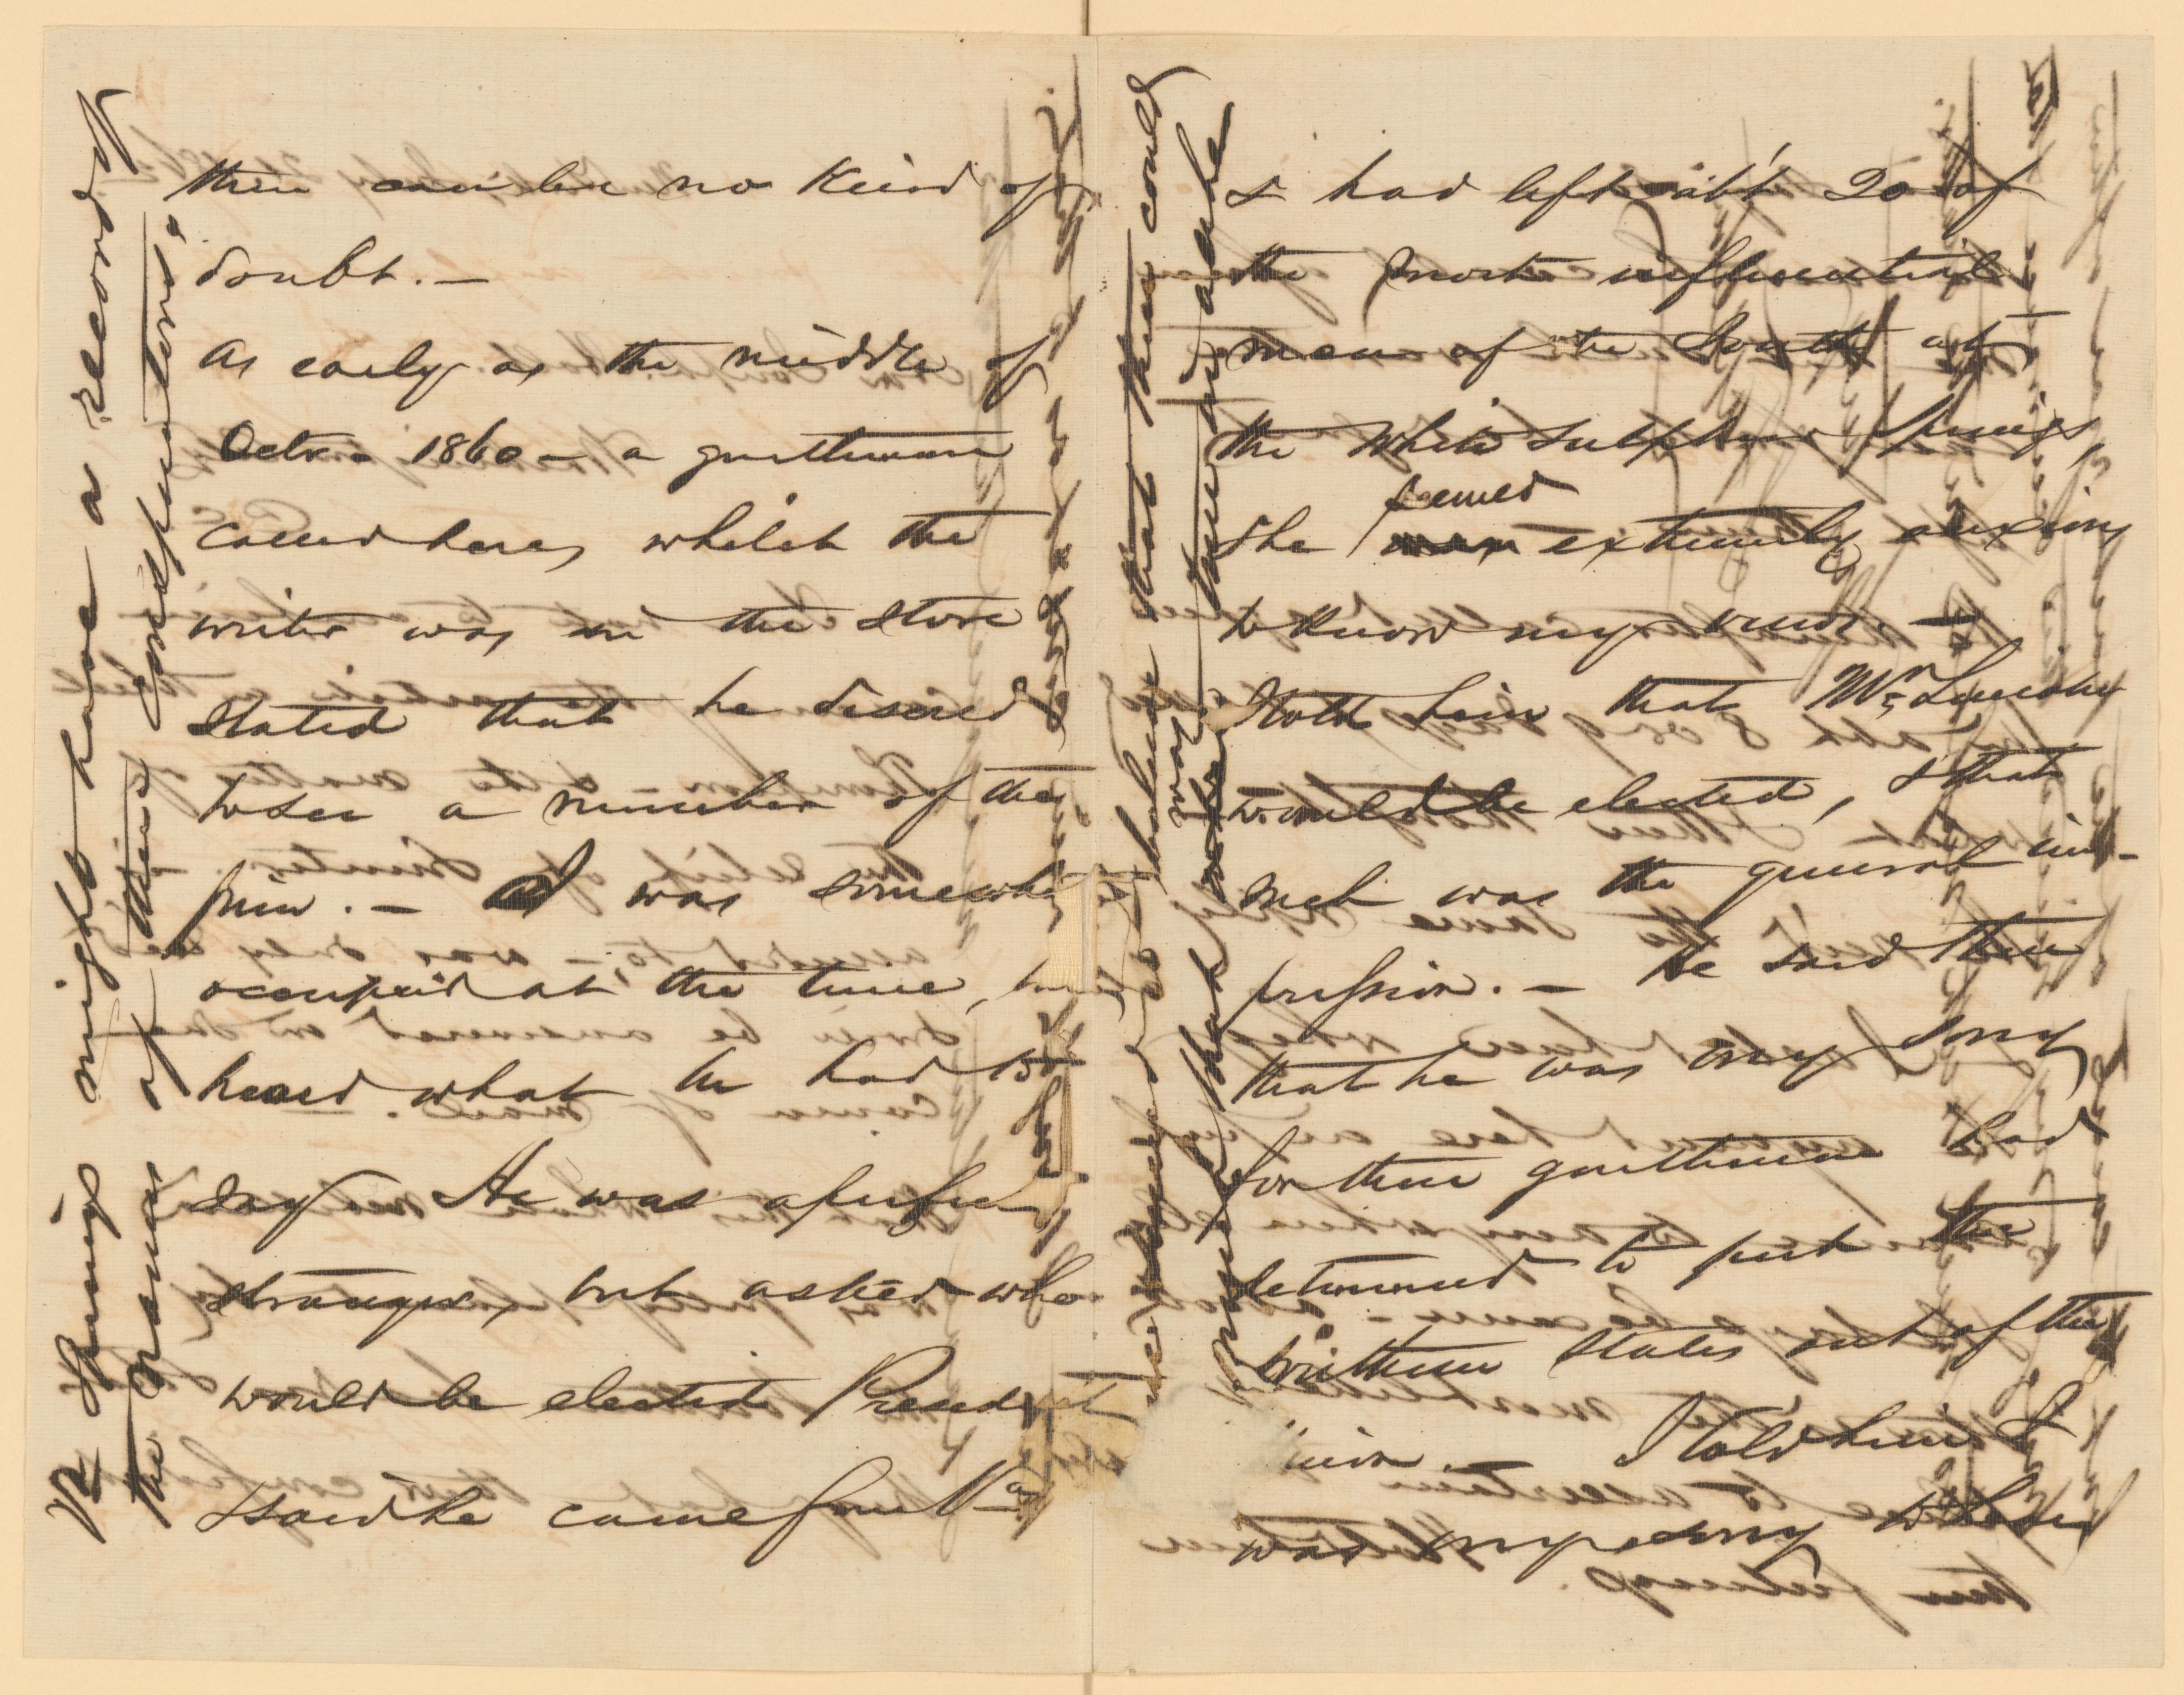 there can be no kind of
doubt. —
As early as the middle of
Octr. 1860 — a gentleman
called here, whilst the
writer was in the store
Stated that he desired
to see a number of the
firm. — I was somewhat
occupied at the time, but
heard what he had to
say He was a perfect
stranger, but asked who
would be elected President
said he came from Va
& had left abt 20 of
the most influential
men of the South at
the White Sulphur Springs,
she seemed extremely anxious
to know my views. —
I told him that Mr. Lincoln
would be elected, & that
such was the general im-
pression. — He said then
that he was very sorry
for these gentlemen had
determined to put the
Southern States out of the
Union. — I told him I
was very sorry to hear
I believe that there could
Springs might have a record of
the names of these conspirators.